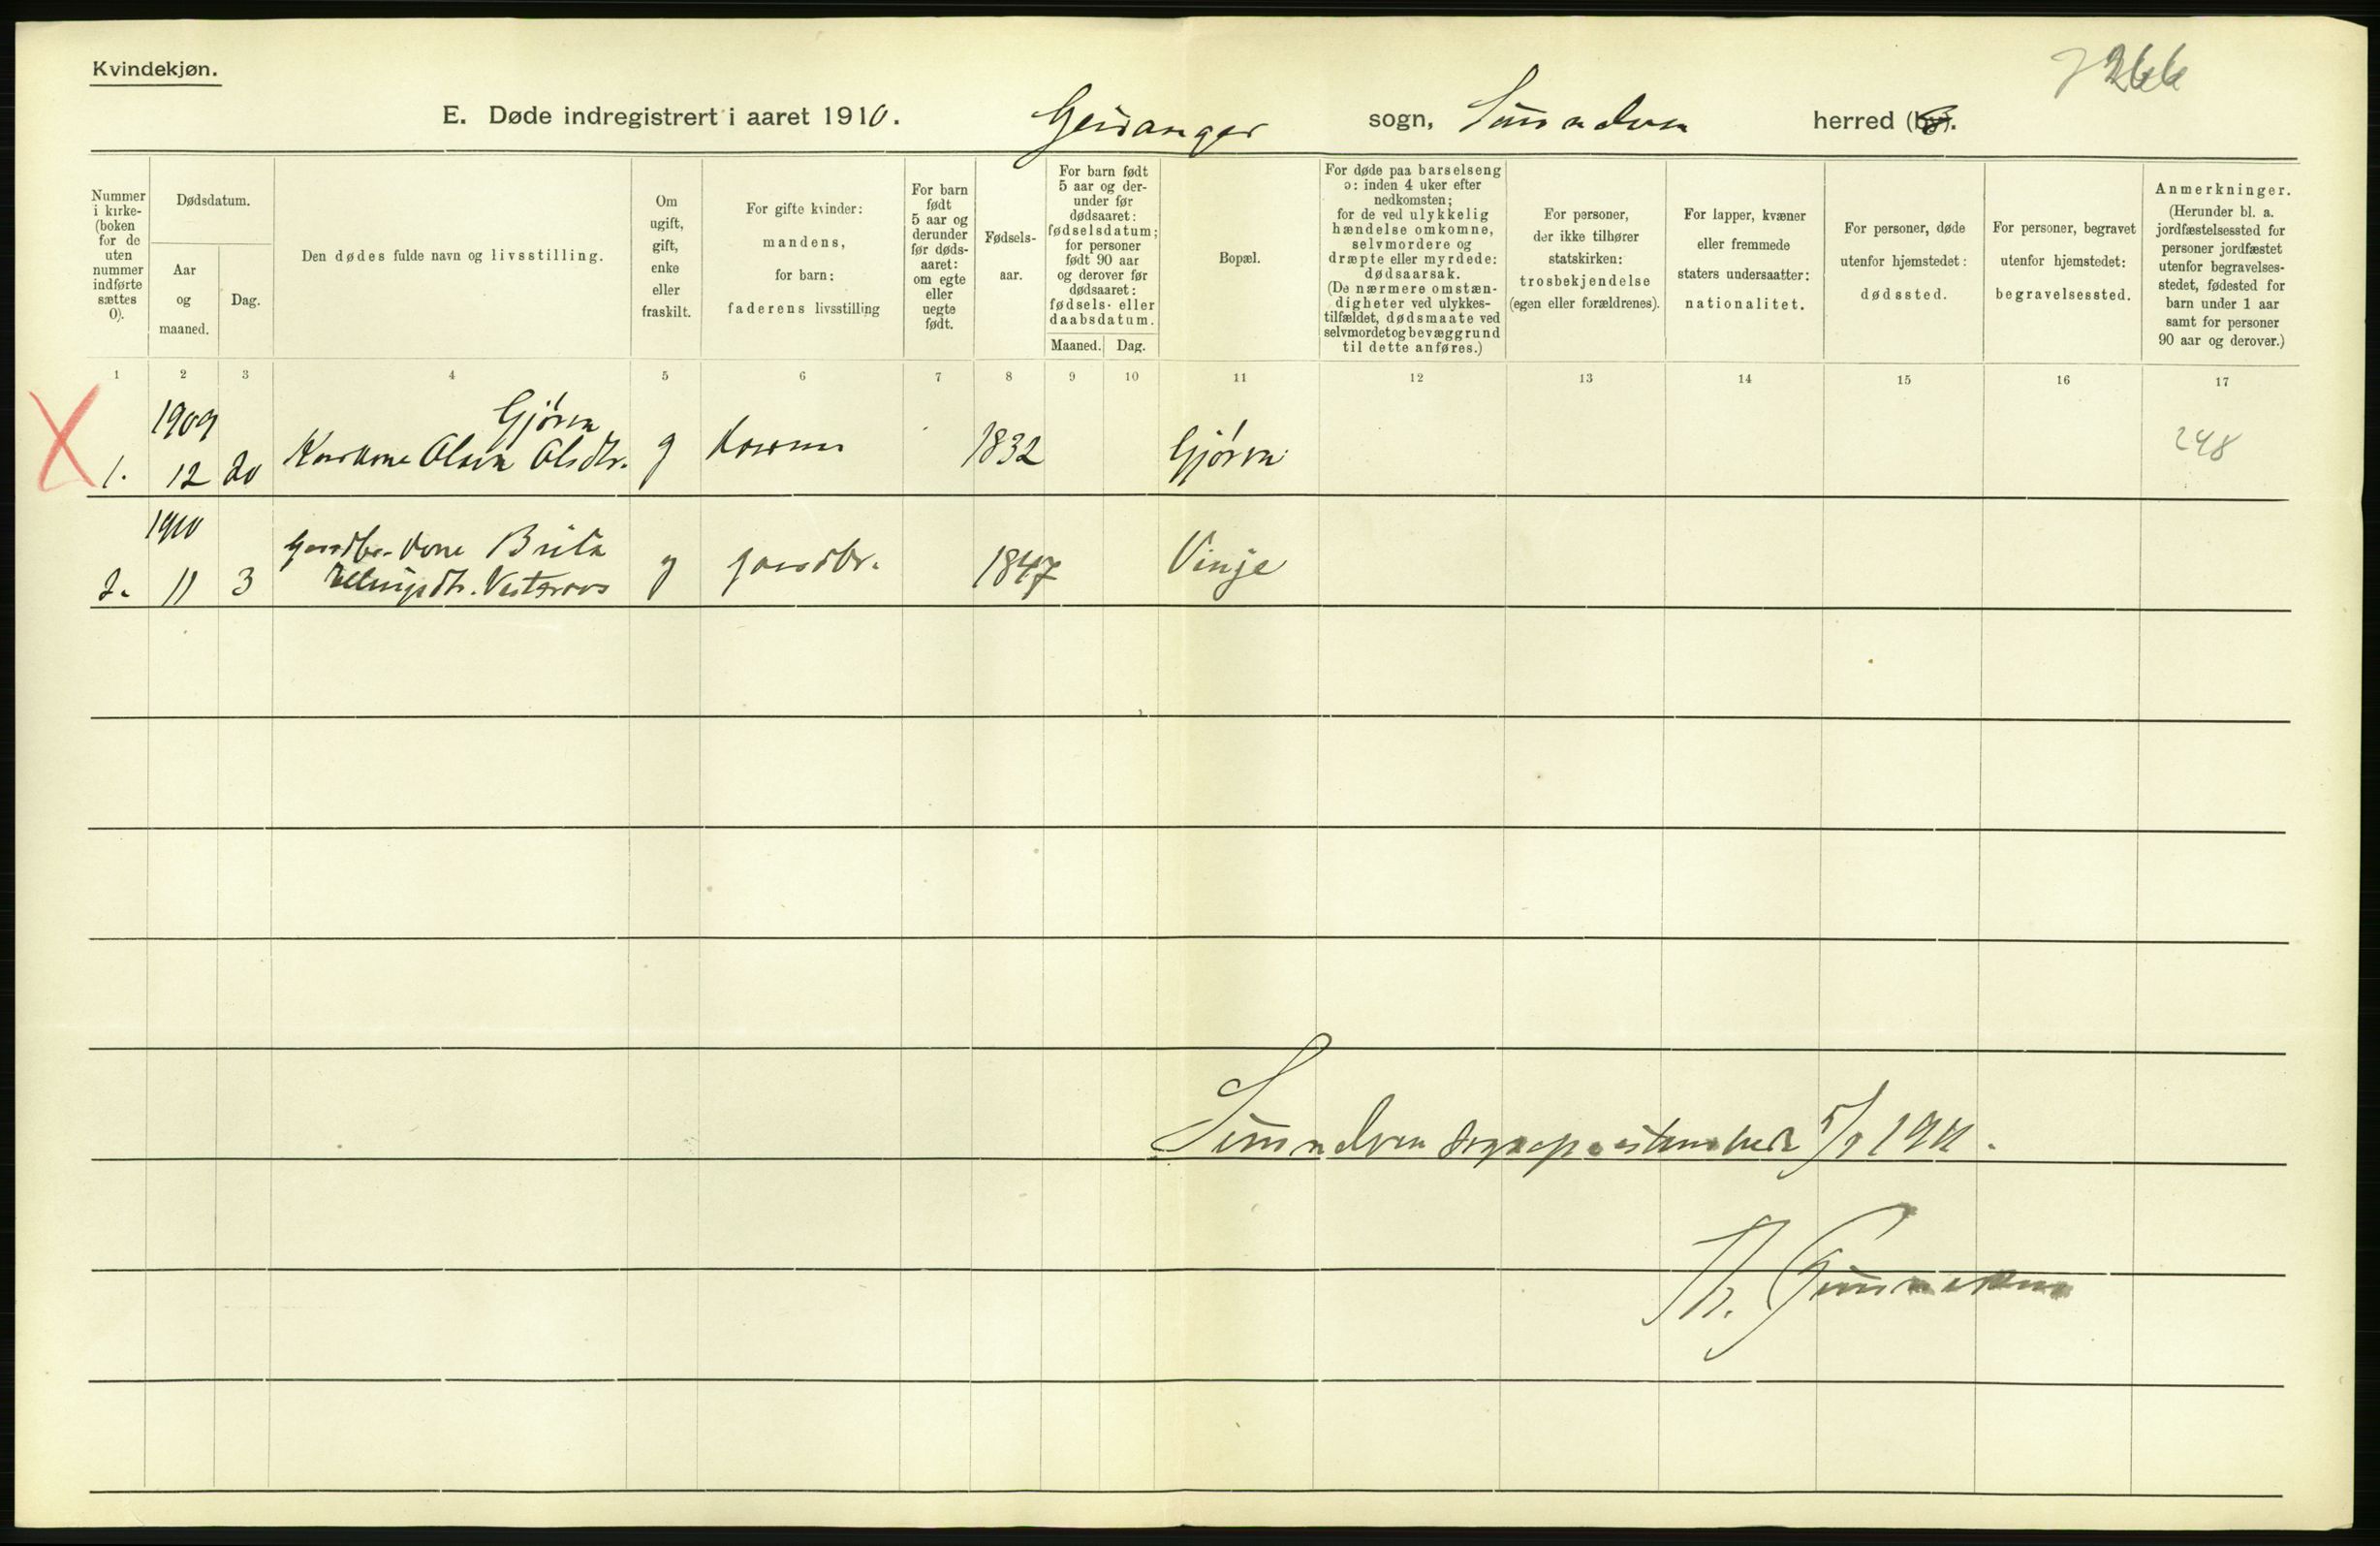 Kvindekjøn.
7266
E. Døde indregistrert i aaret 1910. Geiranger sogn, Sunnelven herred (by).
Nummer i kirke- (boken for de uten nummer indførte sættes 0).
Dødsdatum.
Aar og maaned.
Dag.
Den dødes fulde navn og livsstilling.
Om ugift, gift, enke eller fraskilt.
For gifte kvinder: mandens, for barn: faderens livsstilling
For barn født 5 aar og derunder før døds- aaret: om egte eller uegte født.
Fødsels- aar.
For barn født 5 aar og der- under før dødsaaret: fødselsdatum; for personer født 90 aar og derover før dødsaaret: fødsels- eller daabsdatum.
Maaned. Dag.
Bopæl.
For døde paa barselseng ɔ: inden 4 uker efter nedkomsten; for de ved ulykkelig hændelse omkomne, selvmordere og dræpte eller myrdede: dødsaarsak. (De nærmere omstæn- digheter ved ulykkes- tilfældet, dødsmaate ved selvmordet og bevæggrund til dette anføres.)
For personer, der ikke tilhører statskirken: trosbekjendelse (egen eller forældrenes).
For lapper, kvæner eller fremmede staters undersaatter: nationalitet.
For personer, døde utenfor hjemstedet: dødssted.
For personer, begravet utenfor hjemstedet: begravelsessted.
Anmerkninger. (Herunder bl. a. jordfæstelsessted for personer jordfæstet utenfor begravelses- stedet, fødested for barn under 1 aar samt for personer 90 aar og derover.)
1 2 3 4 5 6 7 8 9 10 11 12 13 14 15 16 17
1909 Gjørva
1. 12 20 Olava Olsdtr. g 1832 Gjørva 248
1910 Gaardbr. kone Brita
2. 11 3 Vesteraas g gaardbr. 1847 Vinje
Sunnelven sogneprestembede 5/1 1911.
Th.